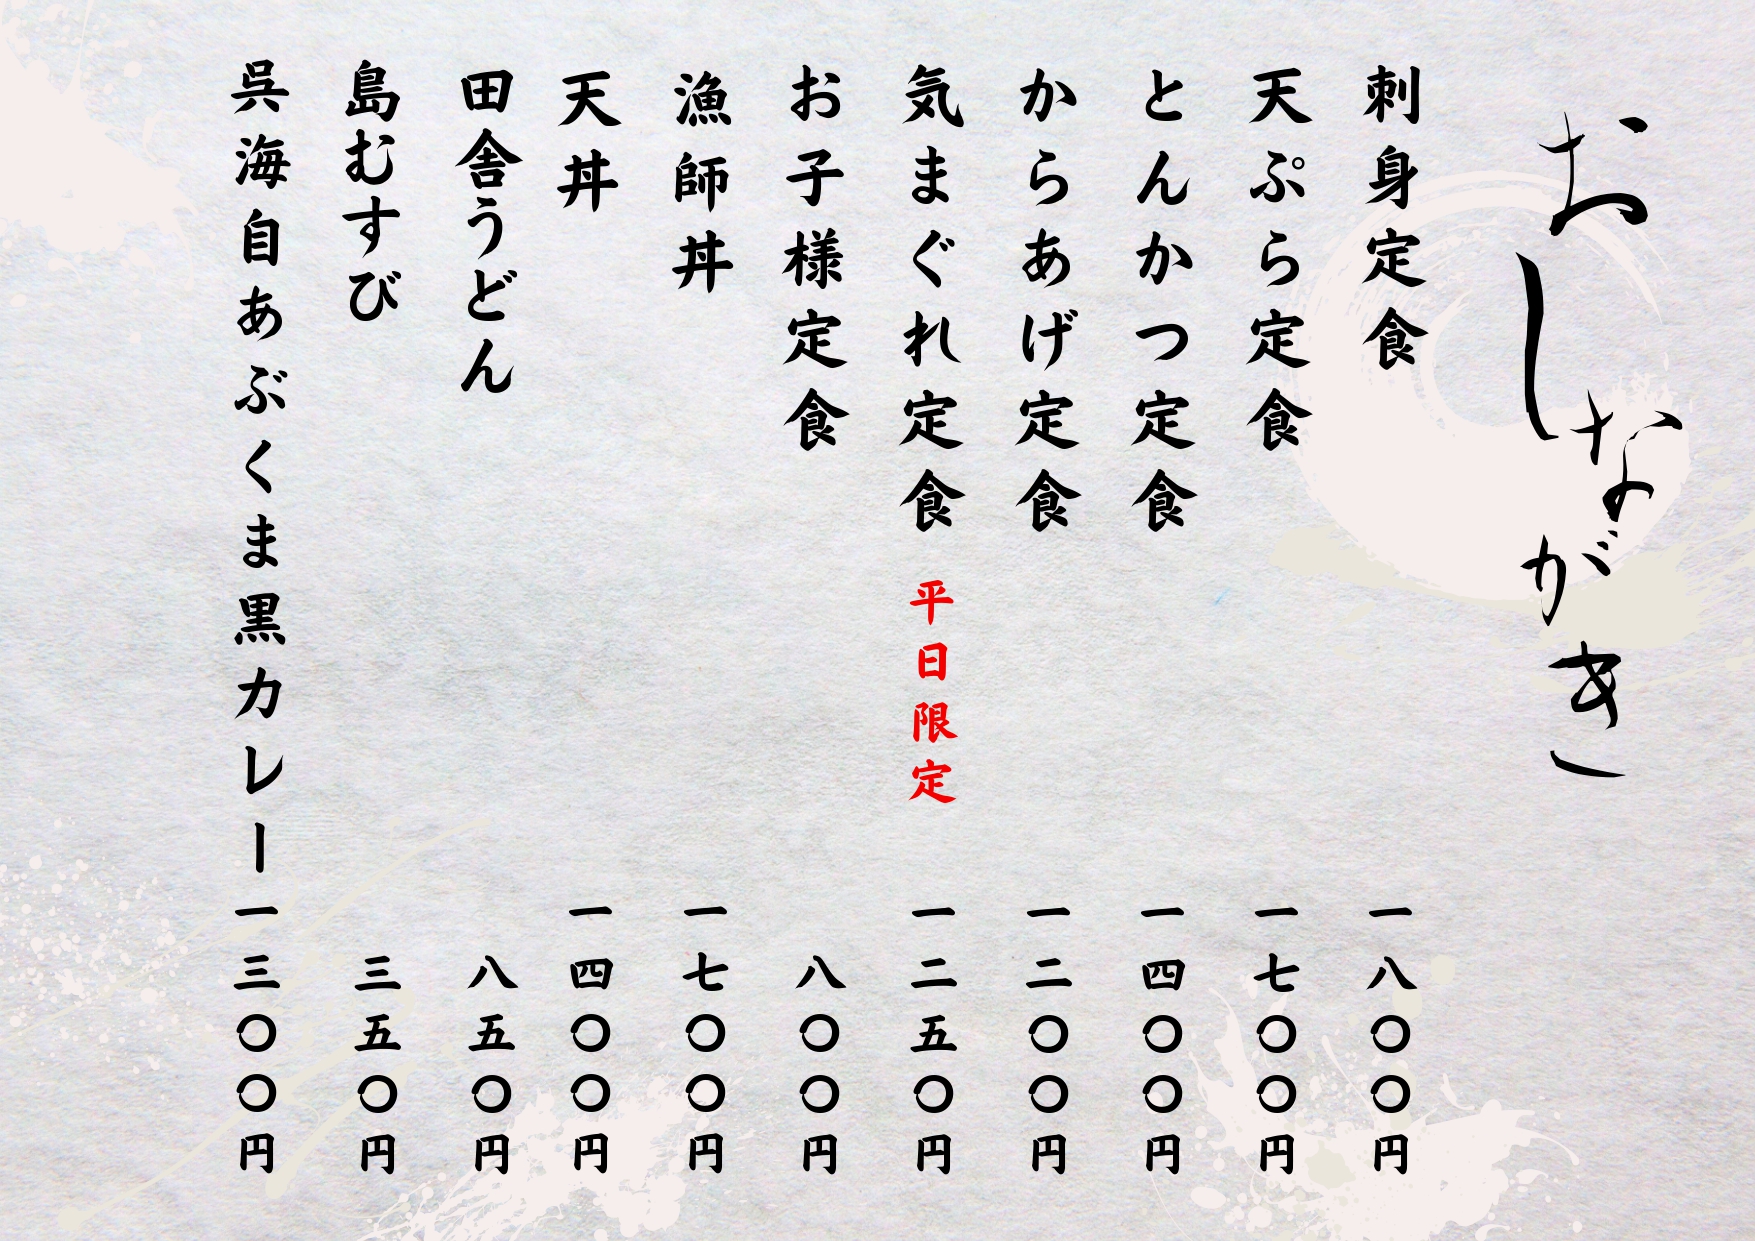 おしながき
刺身定食 一八〇〇円
天ぷら定食 一七〇〇円
とんかつ定食 一四〇〇円
からあげ定食 一二〇〇円
気まぐれ定食 平日限定 一二五〇円
お子様定食 八〇〇円
漁師丼 一七〇〇円
天丼 一四〇〇円
田舎うどん 八五〇円
島むすび 三五〇円
呉海自あぶくま黒カレー 一三〇〇円